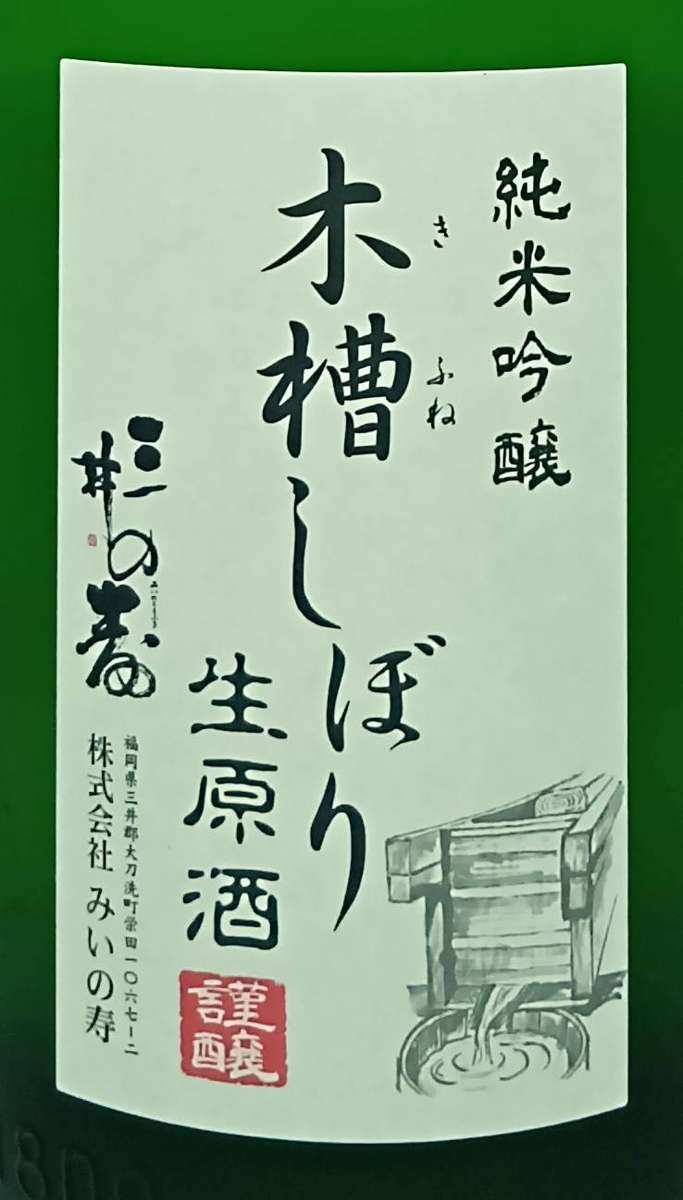 純米吟醸
きふね
木槽しぼり
生原酒
謹醸
三井の寿
福岡県三井郡大刀洗町栄田一〇六七ー二
株式会社 みいの寿
800